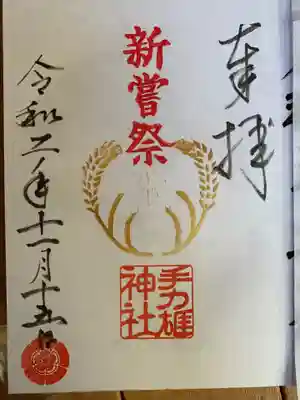 奉拝
新嘗祭
手力雄
神社
令和二年十一月十五日